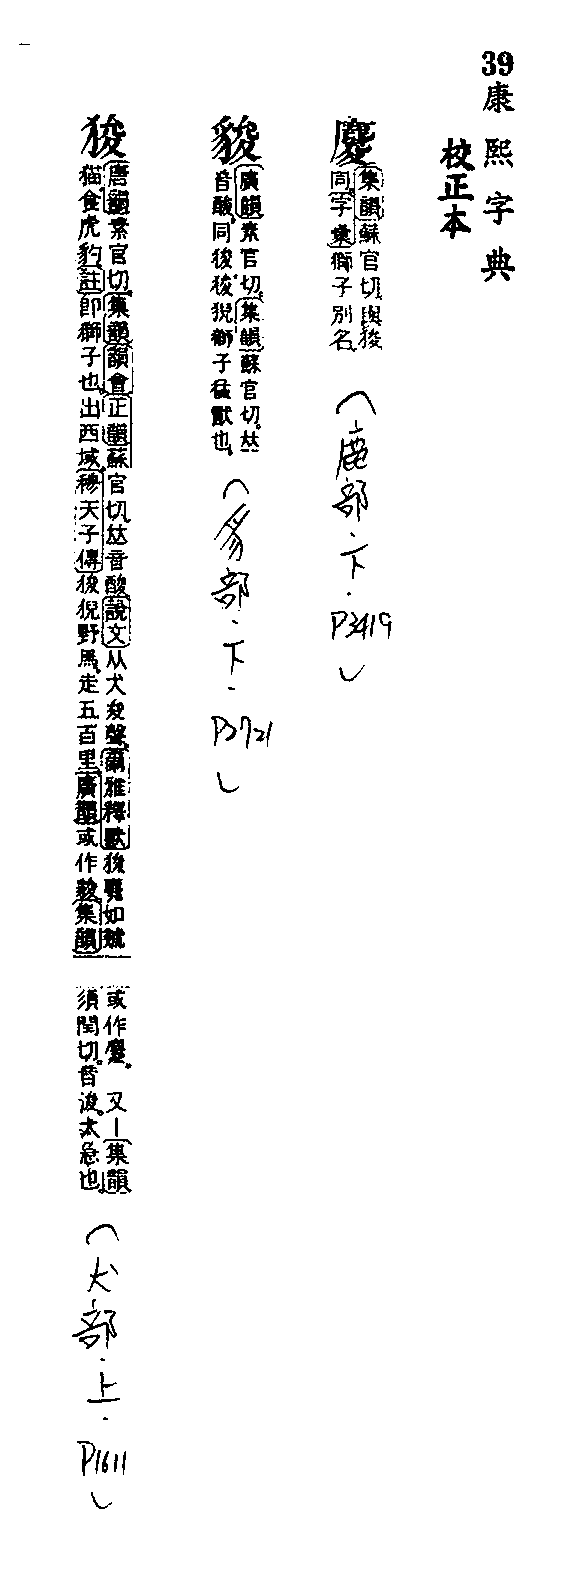 39康熙字典
校正本
麌
集韻蘇官切與狻
同字彙獅子別名
(鹿部·下·P3419)
狻
廣韻素官切集韻蘇官切𠀤
音酸同狻狻猊獅子猛獸也
(豸部·下·P2721)
狻
唐韻素官切集韻韻會正韻蘇官切𠀤音酸說文从犬夋聲爾雅釋獸狻麑如虦
猫食虎豹註即獅子也出西域穆天子傳狻猊野馬走五百里廣韻或作狻集韻
或作麌 又丨集韻
須閏切音浚犬急也
(犬部·上·P1611)